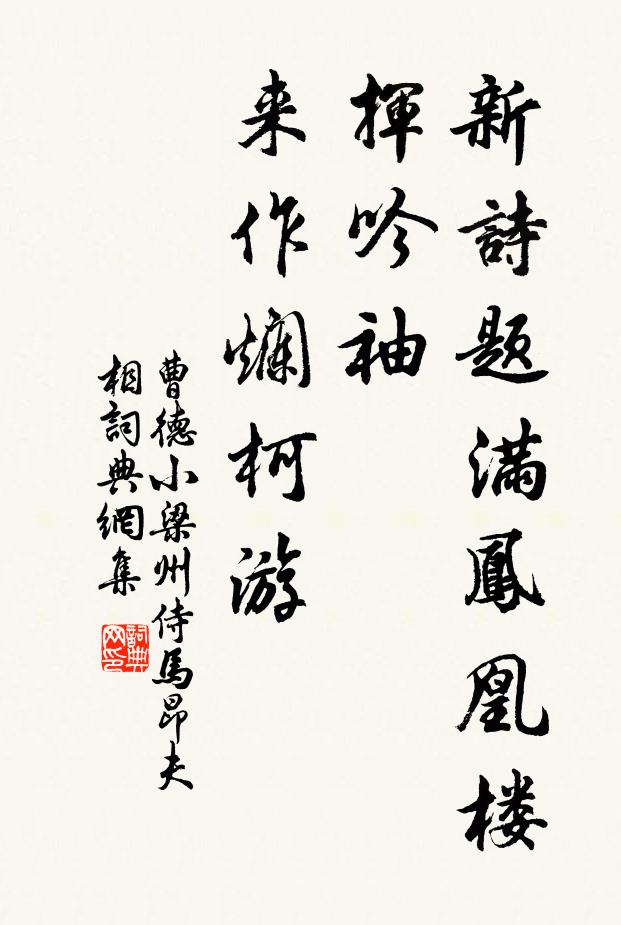 新詩题满鳳凰楼
揮吟袖
来作爛柯游
曹德小梁州侍馬昂夫
相詞典網集
詞典网印